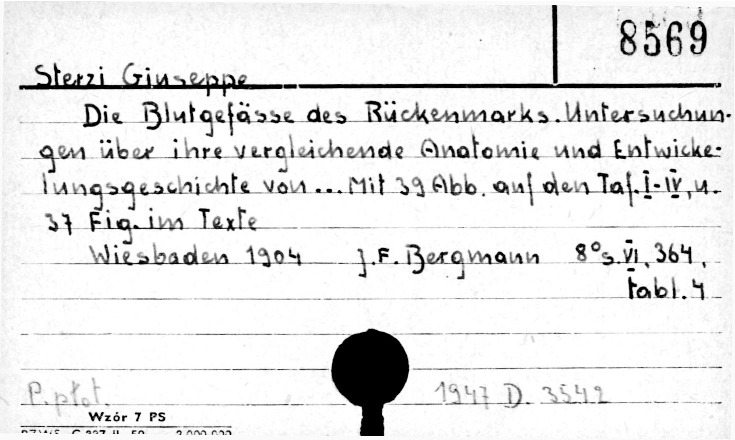 8569
Sterzi Giuseppe
Die Blutgefässe des Rückenmarks. Untersuchun-
gen über ihre vergleichende Anatomie und Entwicke-
lungsgeschichte von... Mit 39 Abb. auf den Taf. I-IV, u.
37 Fig. im Texte
Wiesbaden 1904 J.F. Bergmann 8° s. VI, 364,
tabl. 4
P. płot. 1947 D. 3542
Wzór 7 PS